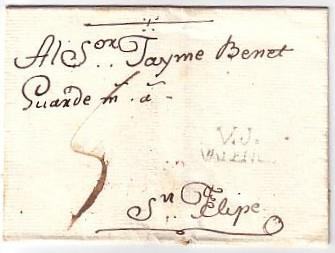 Al S.or Jayme Benet
Guarde m.s a.s
5
V.J.
VALENC
S.n Felipe